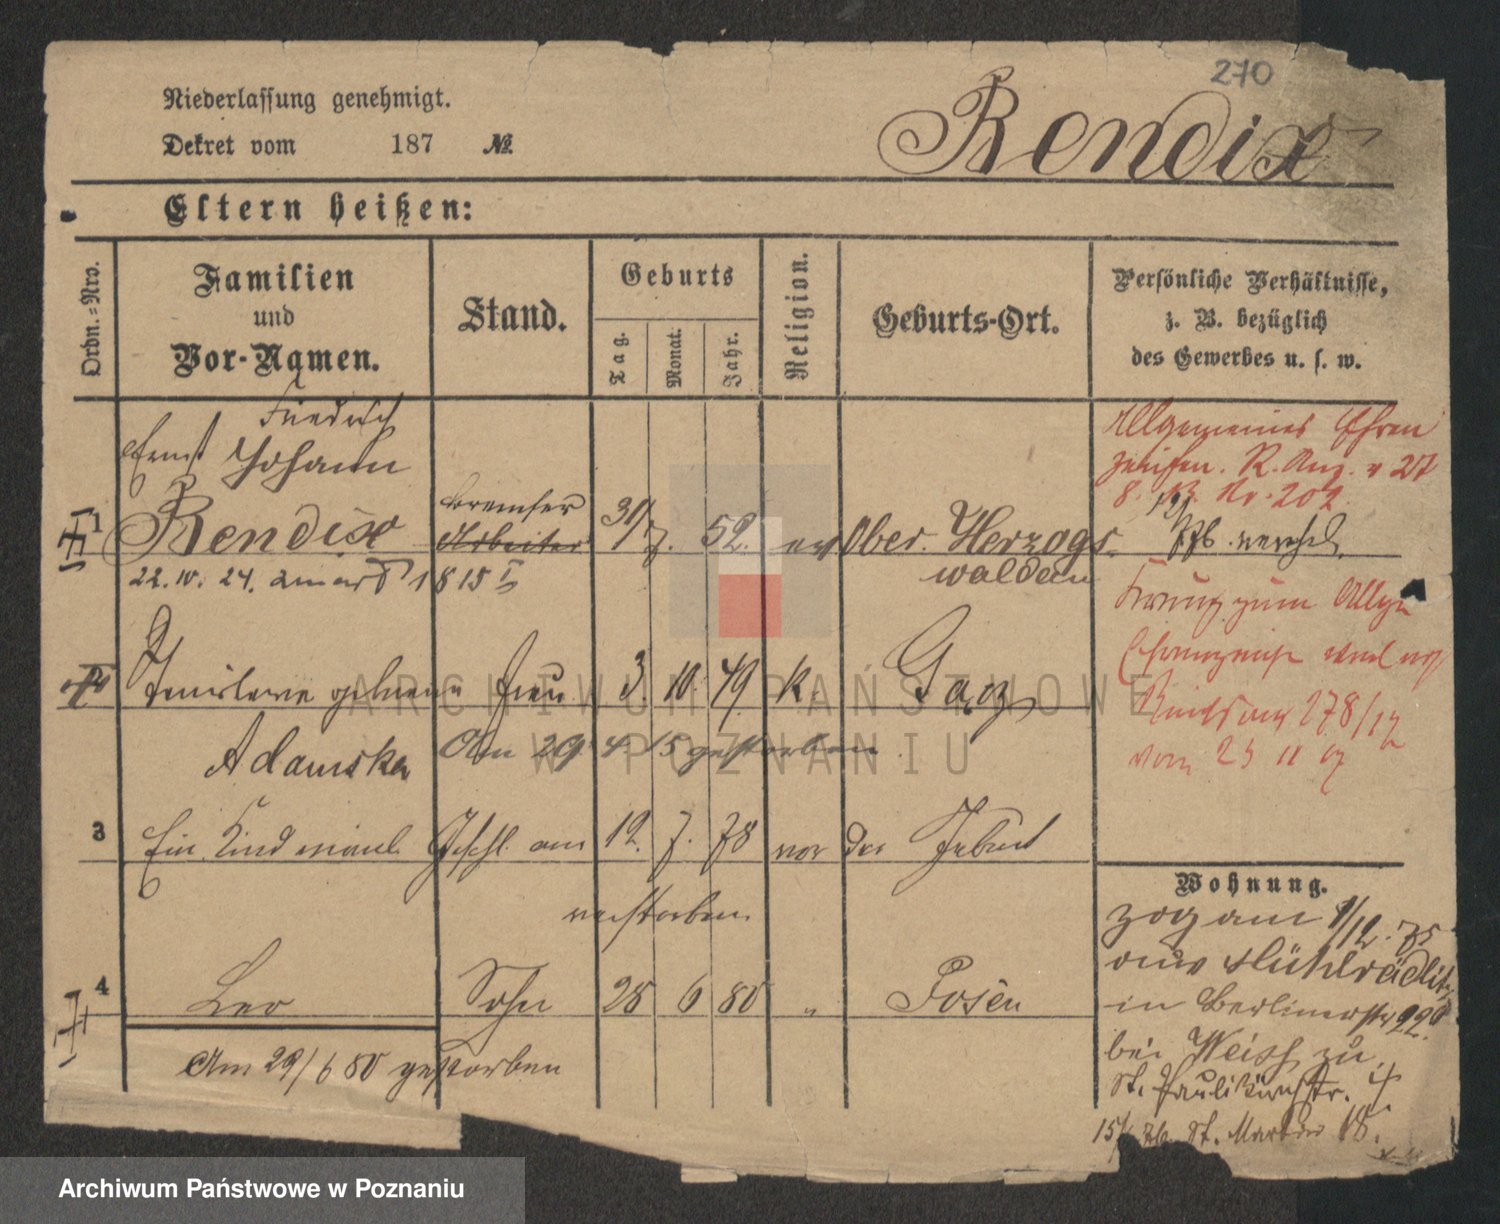 270
Niederlassung genehmigt.
Dekret vom 187 №
Rendix
Eltern heißen:
Ordn.=Nro.
Familien
und
Vor-Namen.
Stand.
Geburts
Tag.
Monat.
Jahr.
Religion.
Geburts-Ort.
Persönliche Verhältnisse,
z. B. bezüglich
des Gewerbes u. s. w.
Friedrich
Ernst Johann
1 Rendix
Bremser
Arbeiter
31/ 7. 52. ev Ober. Herzogs
waldau
Allgemeines Ehren
zeichen. R. Anz. v 27
8. Nr. 202.
22. 10. 24.
Kreuz zum Allg
2 geborene Frau 3. 10. 49. k.
Adamska
Am 29. 4. 15 gestorben
278/12
vom 23 11 07
3 Ein Kind männl. Geschl. am 12. 7. 78 vor der Geburt
verstorben
4 Leo Sohn 28 6 80 " Posen
Am 29/6 80 gestorben
Wohnung.
zog am 1/12. 75
aus Mühlrädlitz
in Berlinerstr
bei Weiss zu
St. Paulikirchstr. 4
St. Martin 18.
ARCHIWUM PAŃSTWOWE
W POZNANIU
Archiwum Państwowe w Poznaniu